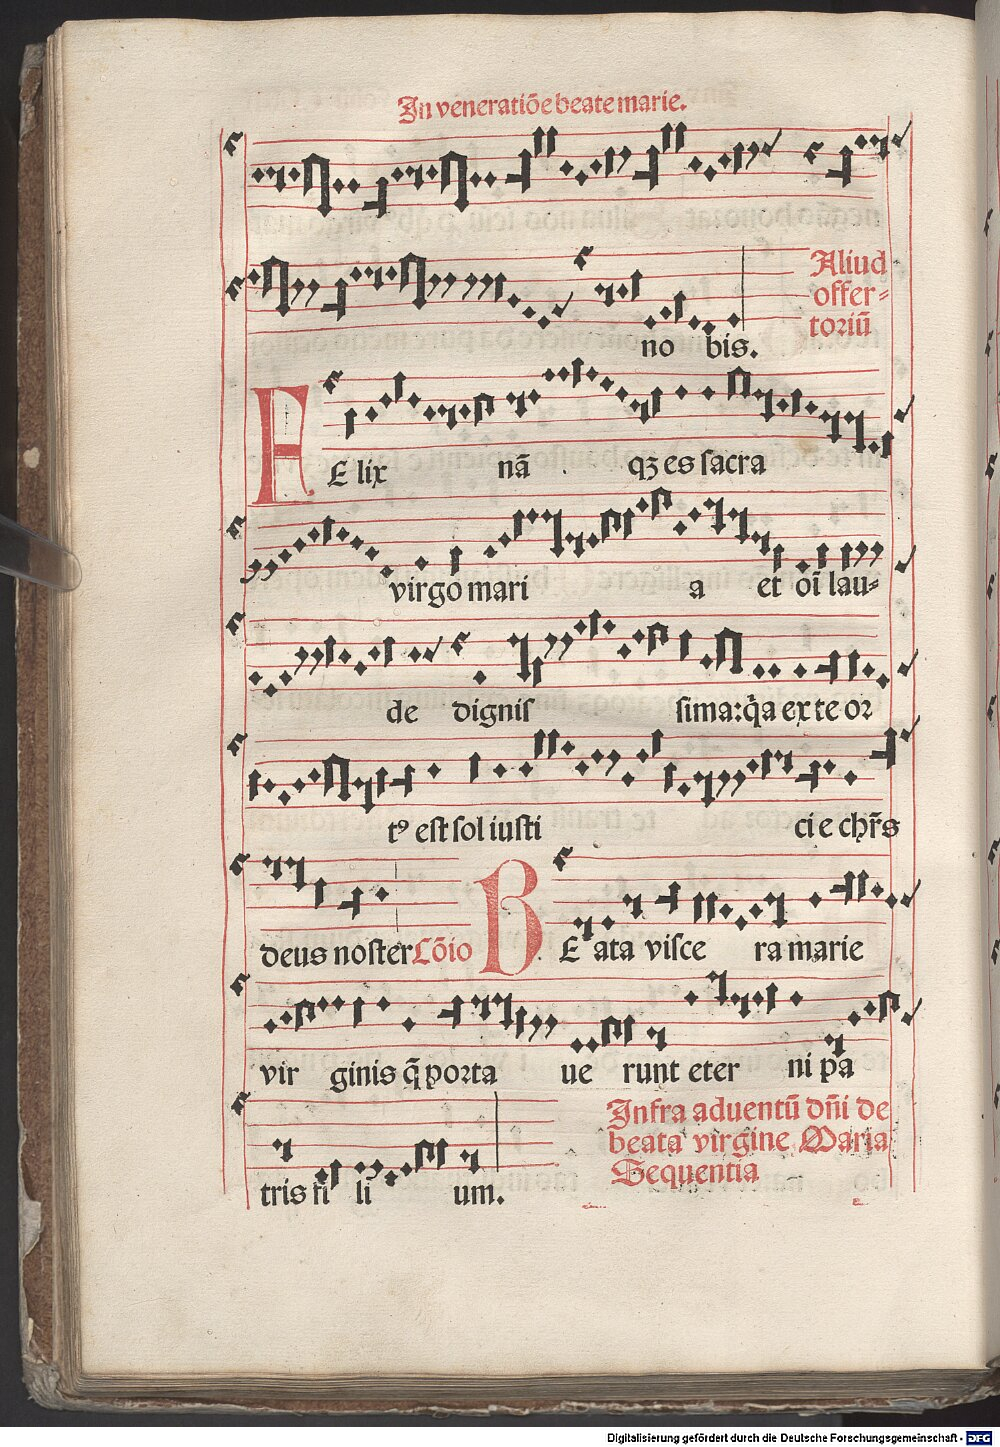 In veneratiōe beate marie.
no bis.
Aliud
offer=
toriū
FElix nā qꝫ es sacra
virgo mari a et oī lau=
de dignis sima: q̄a ex te or
tꝰ est sol iusti ci e chr̄s
deus noster Cōio BEata visce ra marie
vir ginis q̄ porta ue runt eter ni pa
tris fi li um.
Infra aduentū dn̄i de
beata virgine Maria
Sequentia
Digitalisierung gefördert durch die Deutsche Forschungsgemeinschaft - DFG